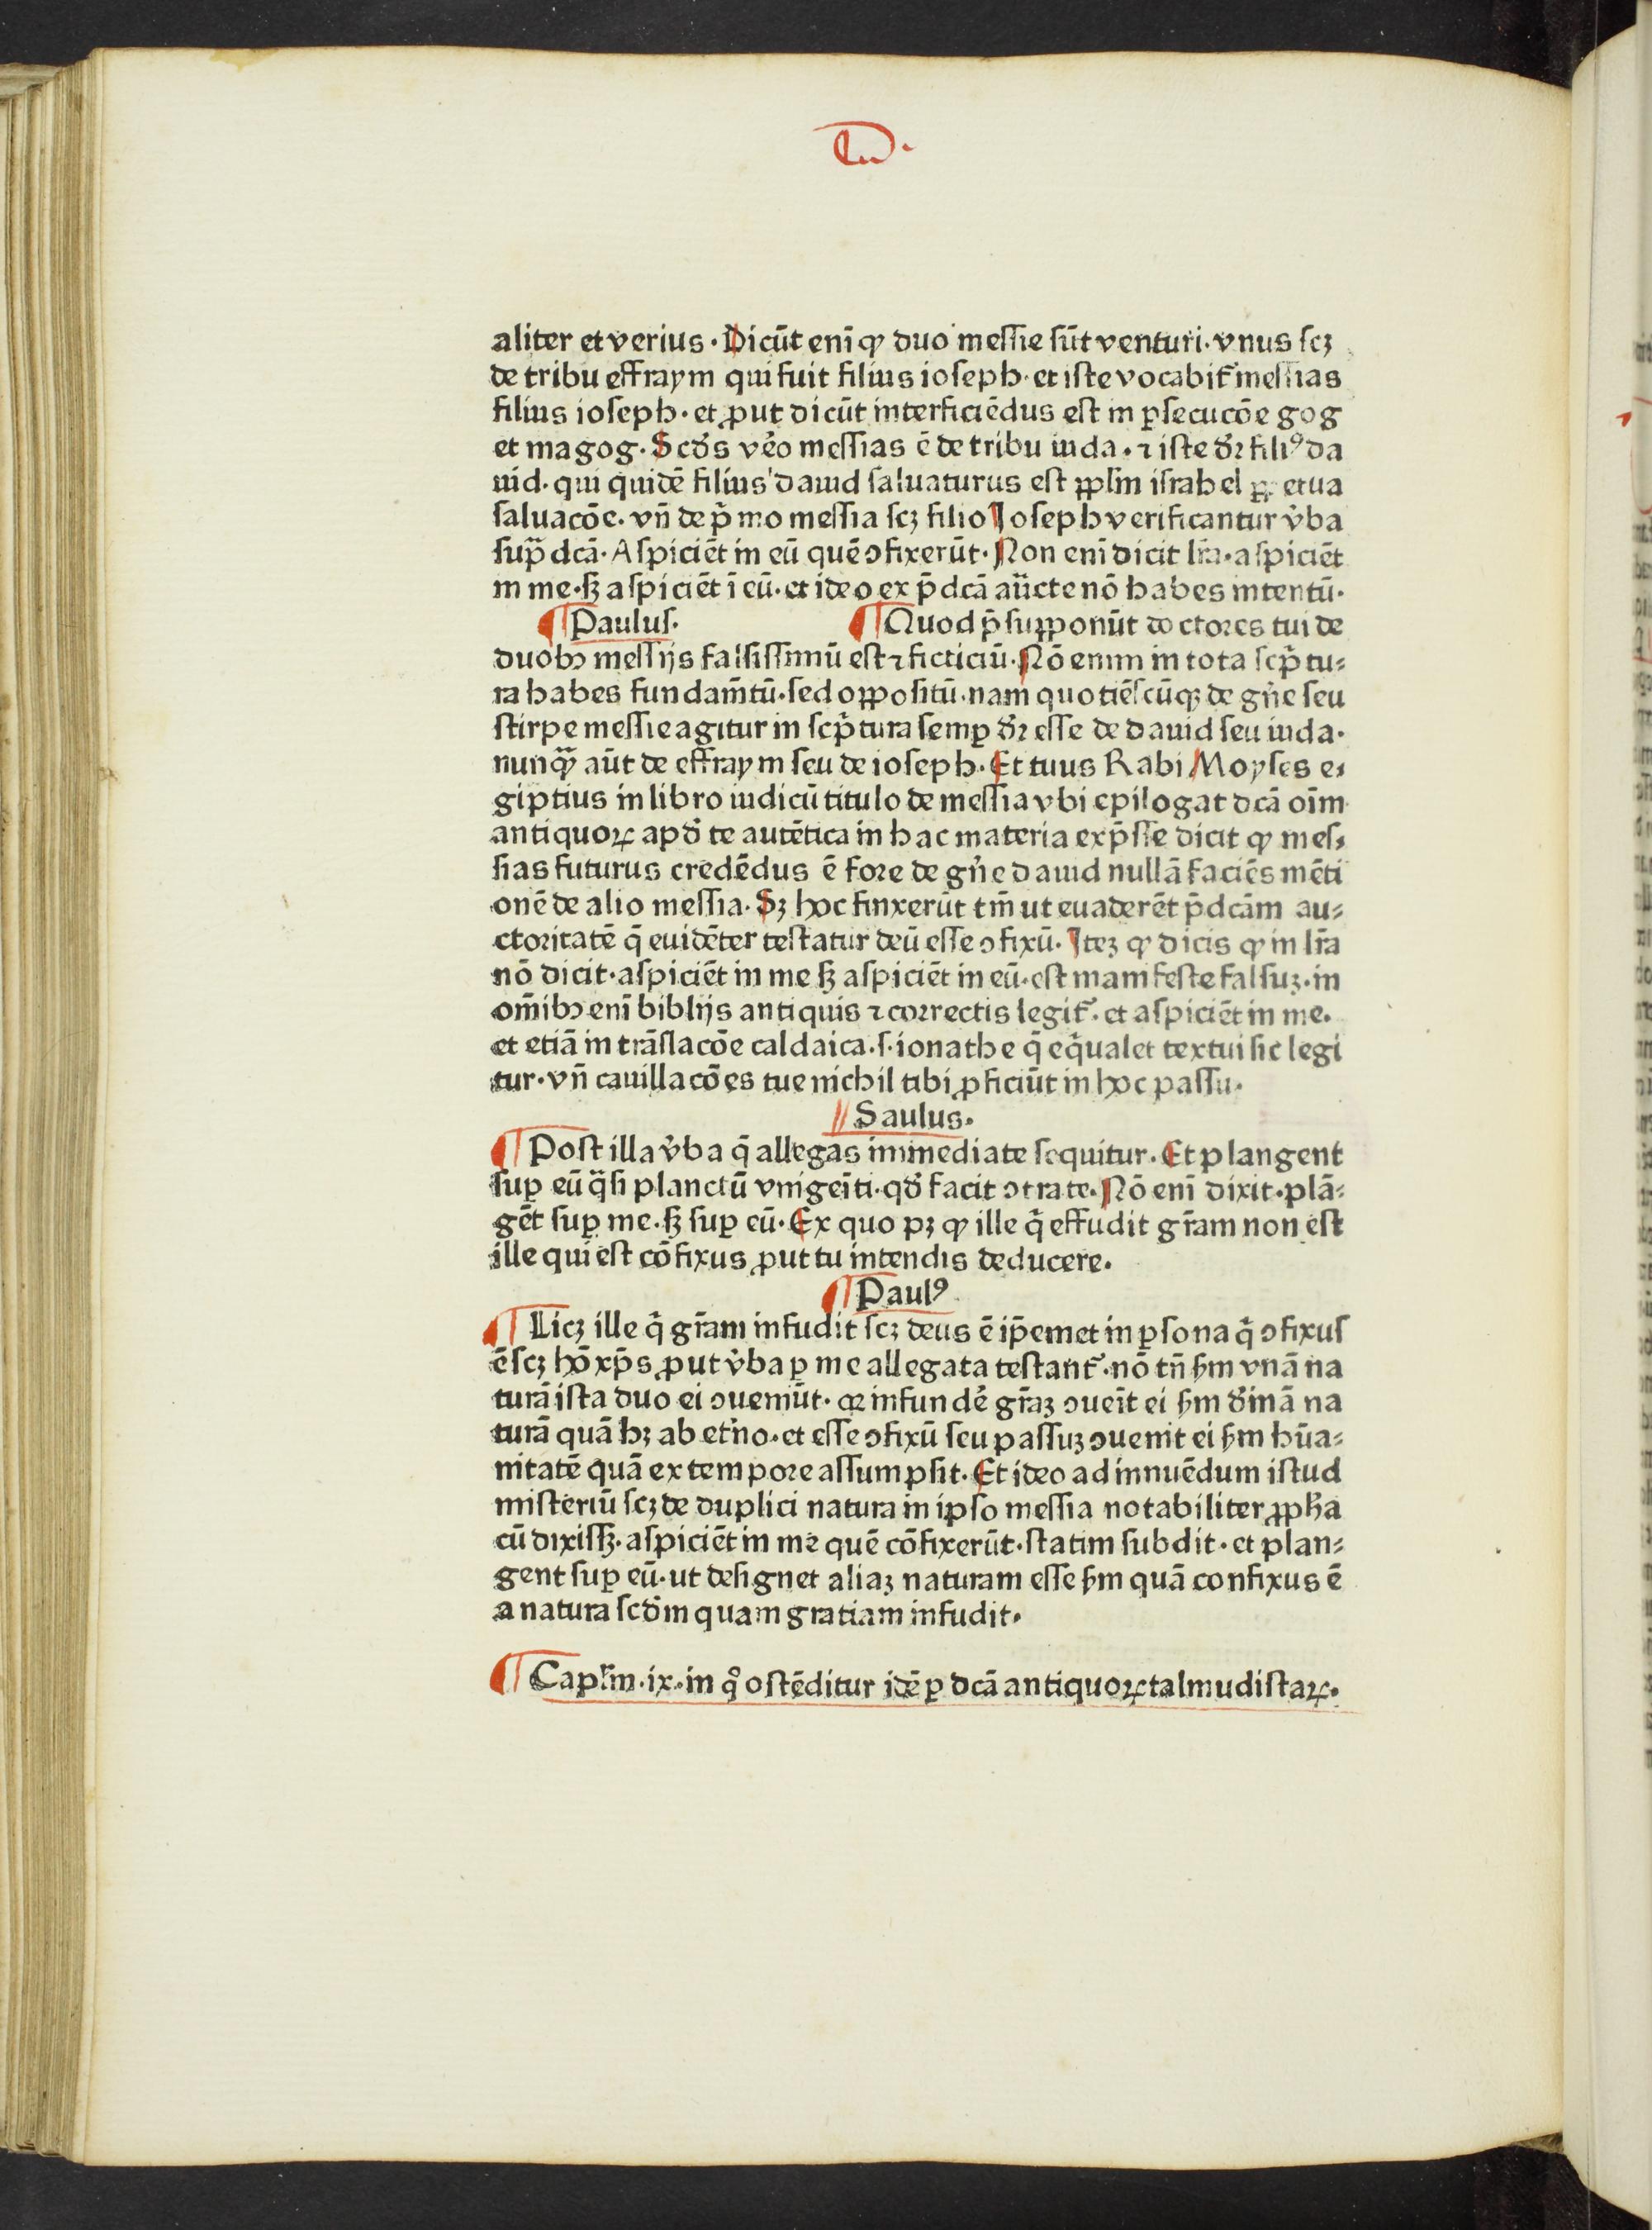 aliter et verius · Dicūt enī ꝙ duo messie sūt venturi · vnus scꝫ
de tribu effraym qui fuit filius ioseph · et iste vocabit᷑ messias
filius ioseph · et ꝓut dicūt interficiēdus est in ꝑsecucōe gog
et magog · Scd̓s ve̓o messias ē de tribu iuda · ⁊ iste d̓ꝛ filiꝰ da
uid · qui quidē filius dauid saluaturus est ꝓplm̄ israhel ꝑpetua
saluacōe · vn̄ de pͥmo messia scꝫ filio Ioseph verificantur v̓ba
supͣ dcā · Aspiciēt in eū quē ɔfixerūt · Non enī dicit lr̄a · aspiciēt
in me · sꝫ aspiciēt ī eū · et ideo ex p̄dcā auc̄te nō habes intentū ·
¶ Paulus · ¶ Quod p̄supponūt doctores tui de
duobꝫ messijs falsissimū est ⁊ ficticiū · Nō enim in tota scpͥtu⸗
ra habes fundam̄tū · sed oppositū · nam quotiēscūqꝫ de gn̓e seu
stirpe messie agitur in scpͥtura semꝑ d̓ꝛ esse de dauid seu iuda ·
nunqͣꝫ aūt de effraym seu de ioseph · Et tuus Rabi Moyses e⸗
giptius in libro iudicū titulo de messia vbi epilogat dcā oīm
antiquoꝝ apd̓ te autētica in hac materia exp̄sse dicit ꝙ mes⸗
sias futurus credēdus ē fore de gn̓e dauid nullā faciēs mēti
onē de alio messia · Sꝫ hoc finxerūt tm̄ ut euaderēt p̄dcām au⸗
ctoritatē q̄ euidēter testatur deū esse ɔfixū · Iteꝫ ꝙ dicis ꝙ in lr̄a
nō dicit · aspiciēt in me sꝫ aspiciēt in eū · est manifeste falsuꝫ · in
om̄ibꝫ enī biblijs antiquis ⁊ correctis legit᷑ · et aspiciēt in me ·
et etiā in trāslacōe caldaica · s · ionathe q̄ eqͥualet textui sic legi
tur · vn̄ cauillacōes tue nichil tibi ꝓficiūt in hoc passu ·
Saulus ·
¶ Post illa v̓ba q̄ allegas immediate sequitur · Et plangent
suꝑ eū qͣsi planctū vnigeīti · qd̓ facit ɔtra te · Nō enī dixit · plā⸗
gēt suꝑ me · sꝫ suꝑ eū · Ex quo pꝫ ꝙ ille qͥ effudit gr̄am non est
ille qui est cōfixus ꝓut tu intendis deducere ·
¶ Paulꝰ
¶ Licꝫ ille qͥ gr̄am infudit scꝫ deus ē ip̄emet in ꝑsona qͥ ɔfixus
ē scꝫ hō xp̄s ꝓut v̓ba ꝑ me allegata testant᷑ · nō tn̄ ẜm vnā na
turā ista duo ei ɔueniūt · qꝛ infunde̓ gr̄aꝫ ɔueīt ei ẜm d̓inā na
turā quā hꝫ ab et̓no · et esse ɔfixū seu passuꝫ ɔuenit ei ẜm hūa⸗
nitatē quā ex tempore assumpsit · Et ideo ad innuēdum istud
misteriū scꝫ de duplici natura in ipso messia notabiliter ꝓpha̅
cū dixissꝫ · aspiciēt in me quē cōfixerūt · statim subdit · et plan⸗
gent suꝑ eū · ut designet aliaꝫ naturam esse ẜm quā confixus ē
a natura scd̓m quam gratiam infudit ·
¶ Caplm̄ · ix · in qͦ ostēditur idē ꝑ dcā antiquoꝝ talmudistaꝝ ·